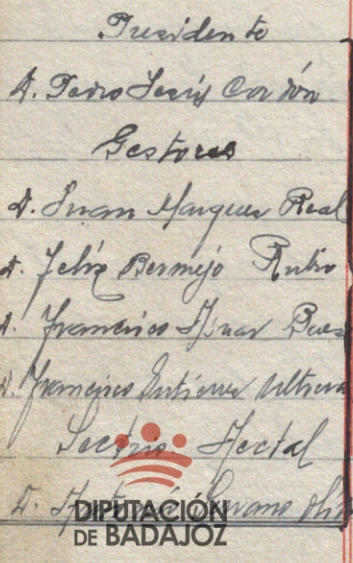 Presidente
D. Pedro Jesús Cordón
Gestores
D. Juan Marquez Real
D. Felix Bermejo Rubio
D. Francisco Aznar
D. Francisco Gutierrez Utrera
Sectrio Acctal
D.
DIPUTACIÓN
DE BADAJOZ